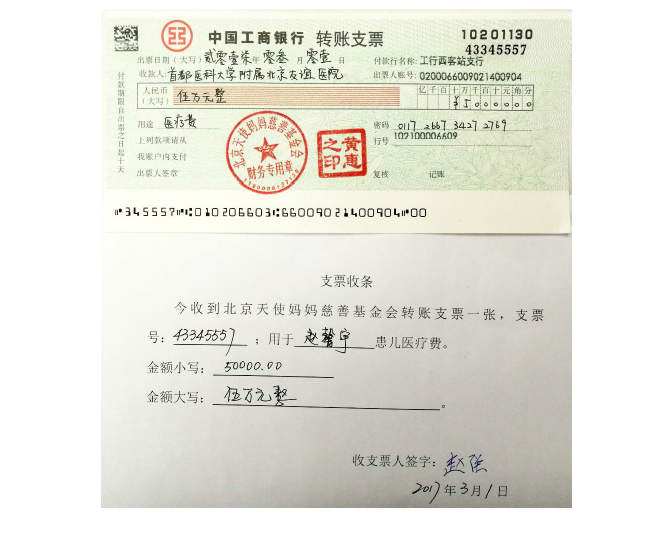 中国工商银行 转账支票
10201130
43345557
出票日期(大写)贰零壹柒年 零叁月 零壹日
付款行名称:工行西客站支行
收款人:首都医科大学附属北京友谊医院
出票人账号:0200066009021400904
人民币(大写) 伍万元整
亿千百十万千百十元角分
¥5000000
付款期限自出票之日起十天
用途 医疗费
密码 0117 2667 3427 2769
上列款项请从
行号 102100006609
我账户内支付
出票人签章
复核 记账
北京天使妈妈慈善基金会
财务专用章
黄惠之印
⑈345557⑈⑆010206603⑆6600902⑆400904⑈00
支票收条
今收到北京天使妈妈慈善基金会转账支票一张,支票
号:43345557;用于 赵馨宇 患儿医疗费。
金额小写:50000.00
金额大写:伍万元整。
收支票人签字:赵
2017年3月1日